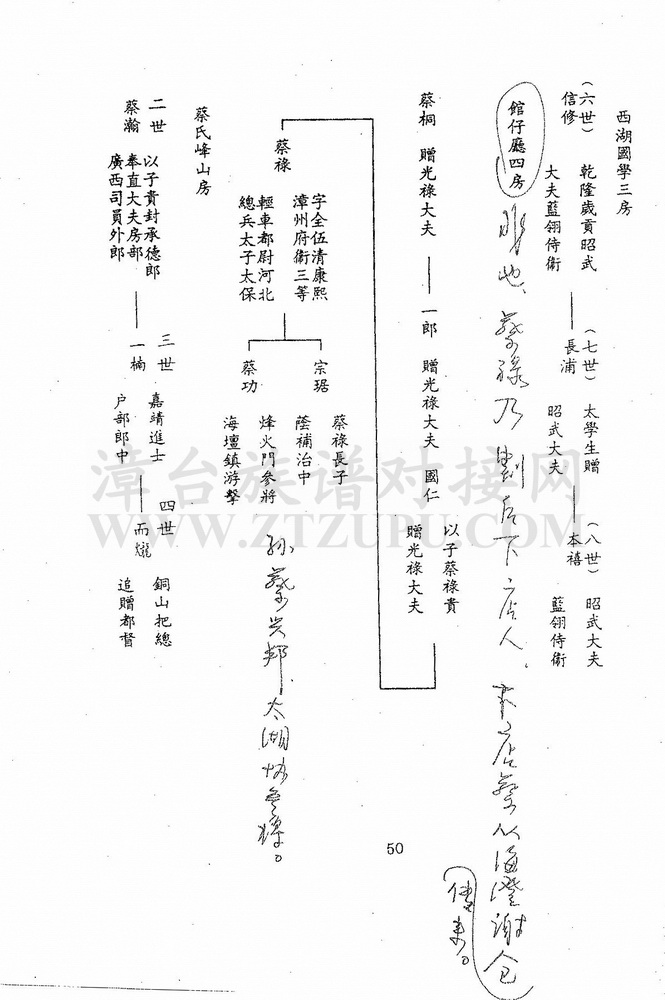 西湖國學三房
(六世) 信修
乾隆歲貢昭武
大夫藍翎侍衛
(七世) 長浦
太學生贈
昭武大夫
(八世) 本禧
昭武大夫
藍翎侍衛
館仔廳四房
非也、蔡祿乃
后下店人、
店蔡从海澄
傳来。
蔡桐 贈光祿大夫
一郎 贈光祿大夫
國仁
以子蔡祿貴
贈光祿大夫
蔡祿
字全伍清康熙
漳州府衛三等
輕車都尉河北
總兵太子太保
宗琚
蔡祿長子
蔭補治中
蔡功
烽火門參將
海壇鎮游擊
孙蔡兴邦太湖协参将。
蔡氏峰山房
二世
蔡瀚
以子貴封承德郎
奉直大夫房部
廣西司員外郎
三世
一楠
嘉靖進士
户部郎中
四世
而熾
銅山把總
追贈都督
50
漳台族谱对接网
WWW.ZTZUPU.COM